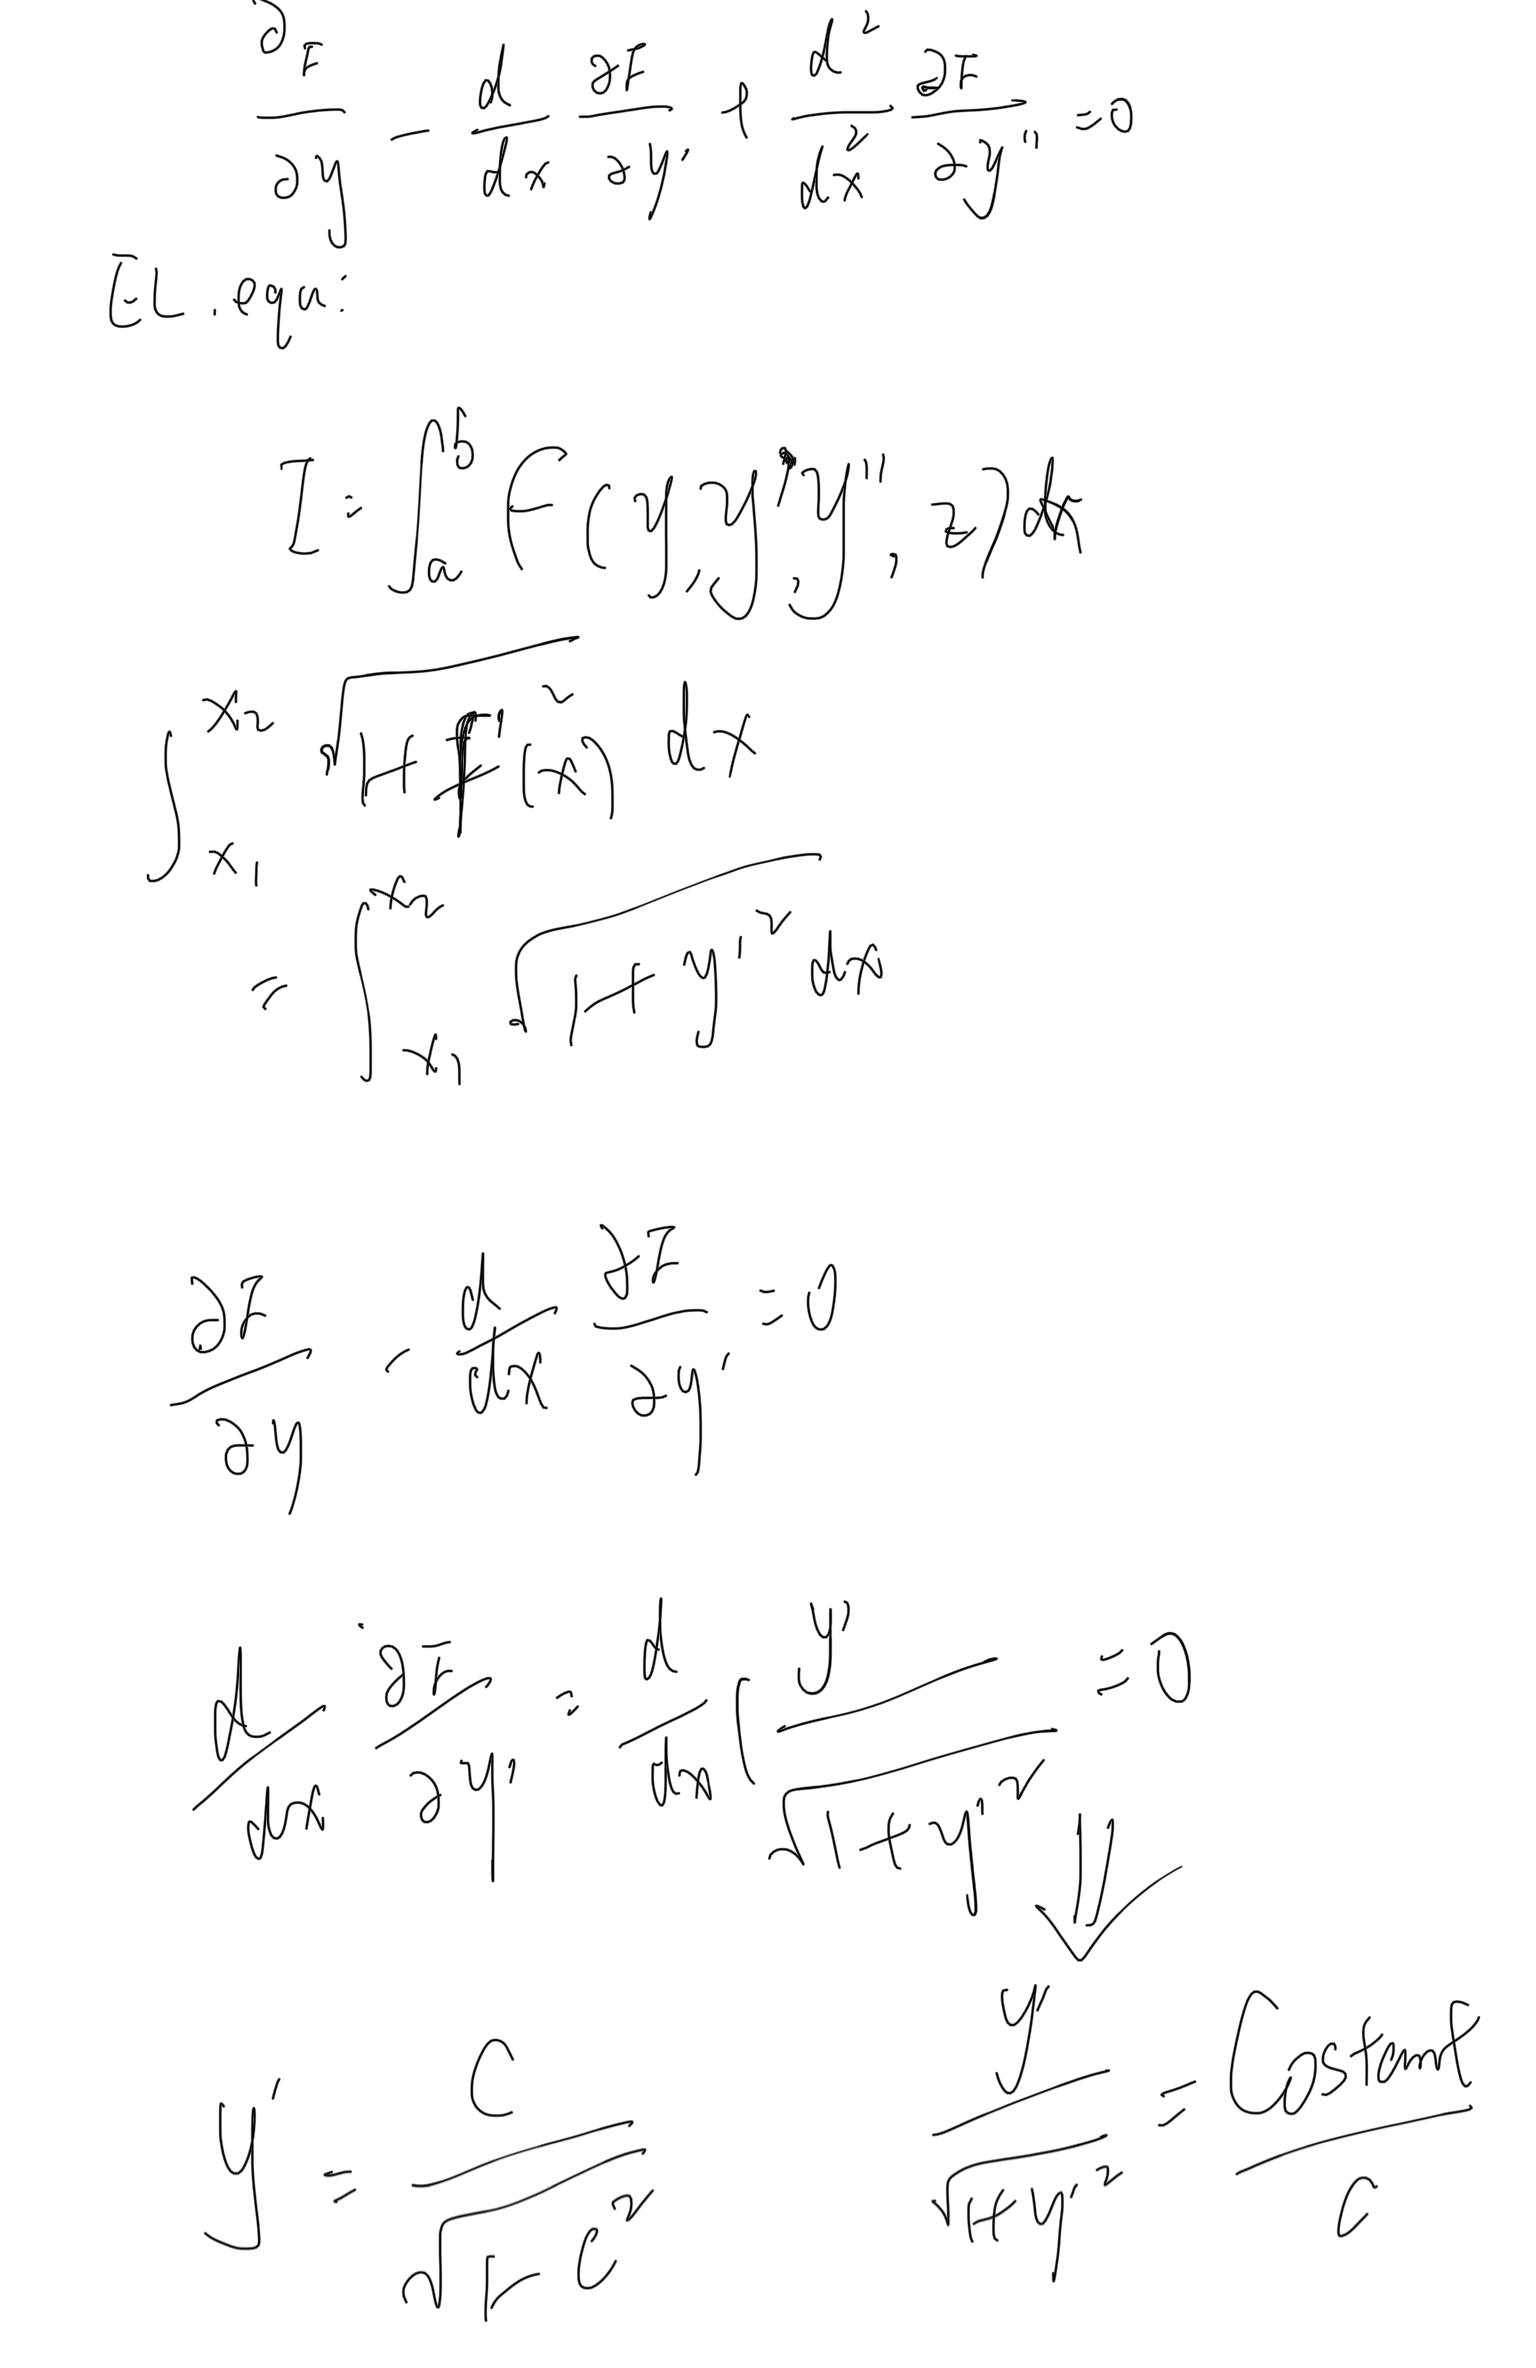 ∂F/∂y - d/dx ∂F/∂y' + d²/dx² ∂F/∂y'' = 0
EL. equ:
I = ∫_a^b F(y, y', y'', z) dx
∫_{x₁}^{x₂} √(1+f'²(x)) dx
= ∫_{x₁}^{x₂} √(1+y'²) dx
∂F/∂y - d/dx ∂F/∂y' = 0
d/dx ∂F/∂y' = d/dx ( y'/√(1+y'²) = 0
⇓
y'/√(1+y'²) = Costant/C
y' = C/√(1-C²)